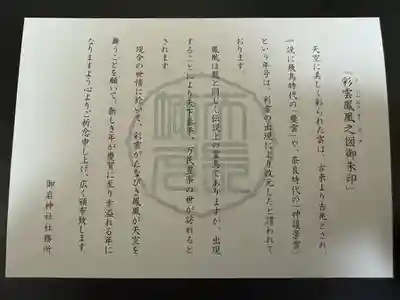 「彩雲鳳凰之図御朱印」
天空に美しく彩られた雲は、古来より吉兆とされ、
一説に飛鳥時代の「慶雲」や、奈良時代の「神護景雲」
という年号は、彩雲の出現により改元したと謂われて
おります。
鳳凰は龍と同じく伝説上の霊鳥でありますが、出現
することにより天下泰平、万民豊楽の世が訪れると
されます。
現今の世情に於いて、彩雲がたなびき鳳凰が天空を
舞うことを願いて、新しき年が慶賀に至り幸溢れる年に
なりますよう心よりご祈念申し上げ、広く頒布致します。
御岩神社社務所